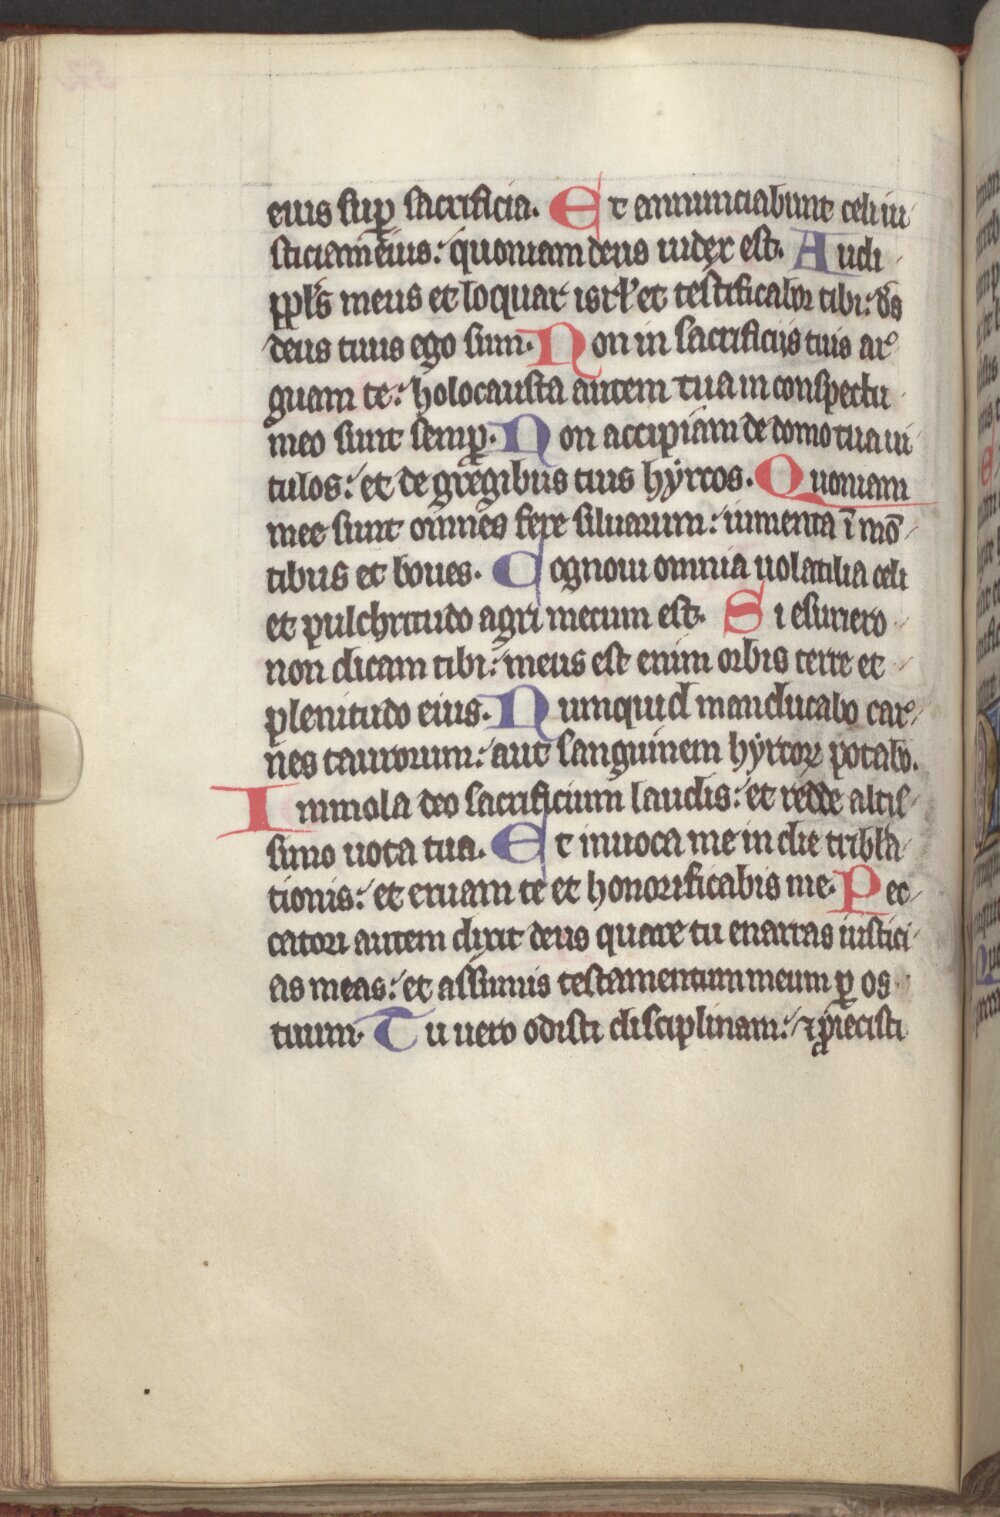 eius sup̱ sacrificia. Et annunciabunt celi iu
sticiam eius: quoniam deus iudex est. Audi
ppl̄s meus et loquar isrl̓ et testificabor tibi: ds̄
deus tuus ego sum. Non in sacrificijs tuis ar
guam te: holocausta autem tua in conspectu
meo sunt semp̱. Non accipiam de domo tua ui
tulos: et de gregibus tuis hyrcos. Quoniam
mee sunt omnes fere siluarum: iumenta ī mō
tibus et boues. Cognoui omnia uolatilia celi
et pulchritudo agri mecum est. Si esuriero
non dicam tibi: meus est enim orbis terre et
plenitudo eius. Numquid manducabo car
nes taurorum: aut sanguinem hyrcoꝝ potabo.
Immola deo sacrificium laudis: et redde altis
simo uota tua. Et inuoca me in die tribla
tionis: et eruam te et honorificabis me. Pec
catori autem dixit deus quare tu enarras iustici
as meas: et assumis testamentum meum ꝑ os
tuum. Tu uero odisti disciplinam: ⁊ ꝓiecisti